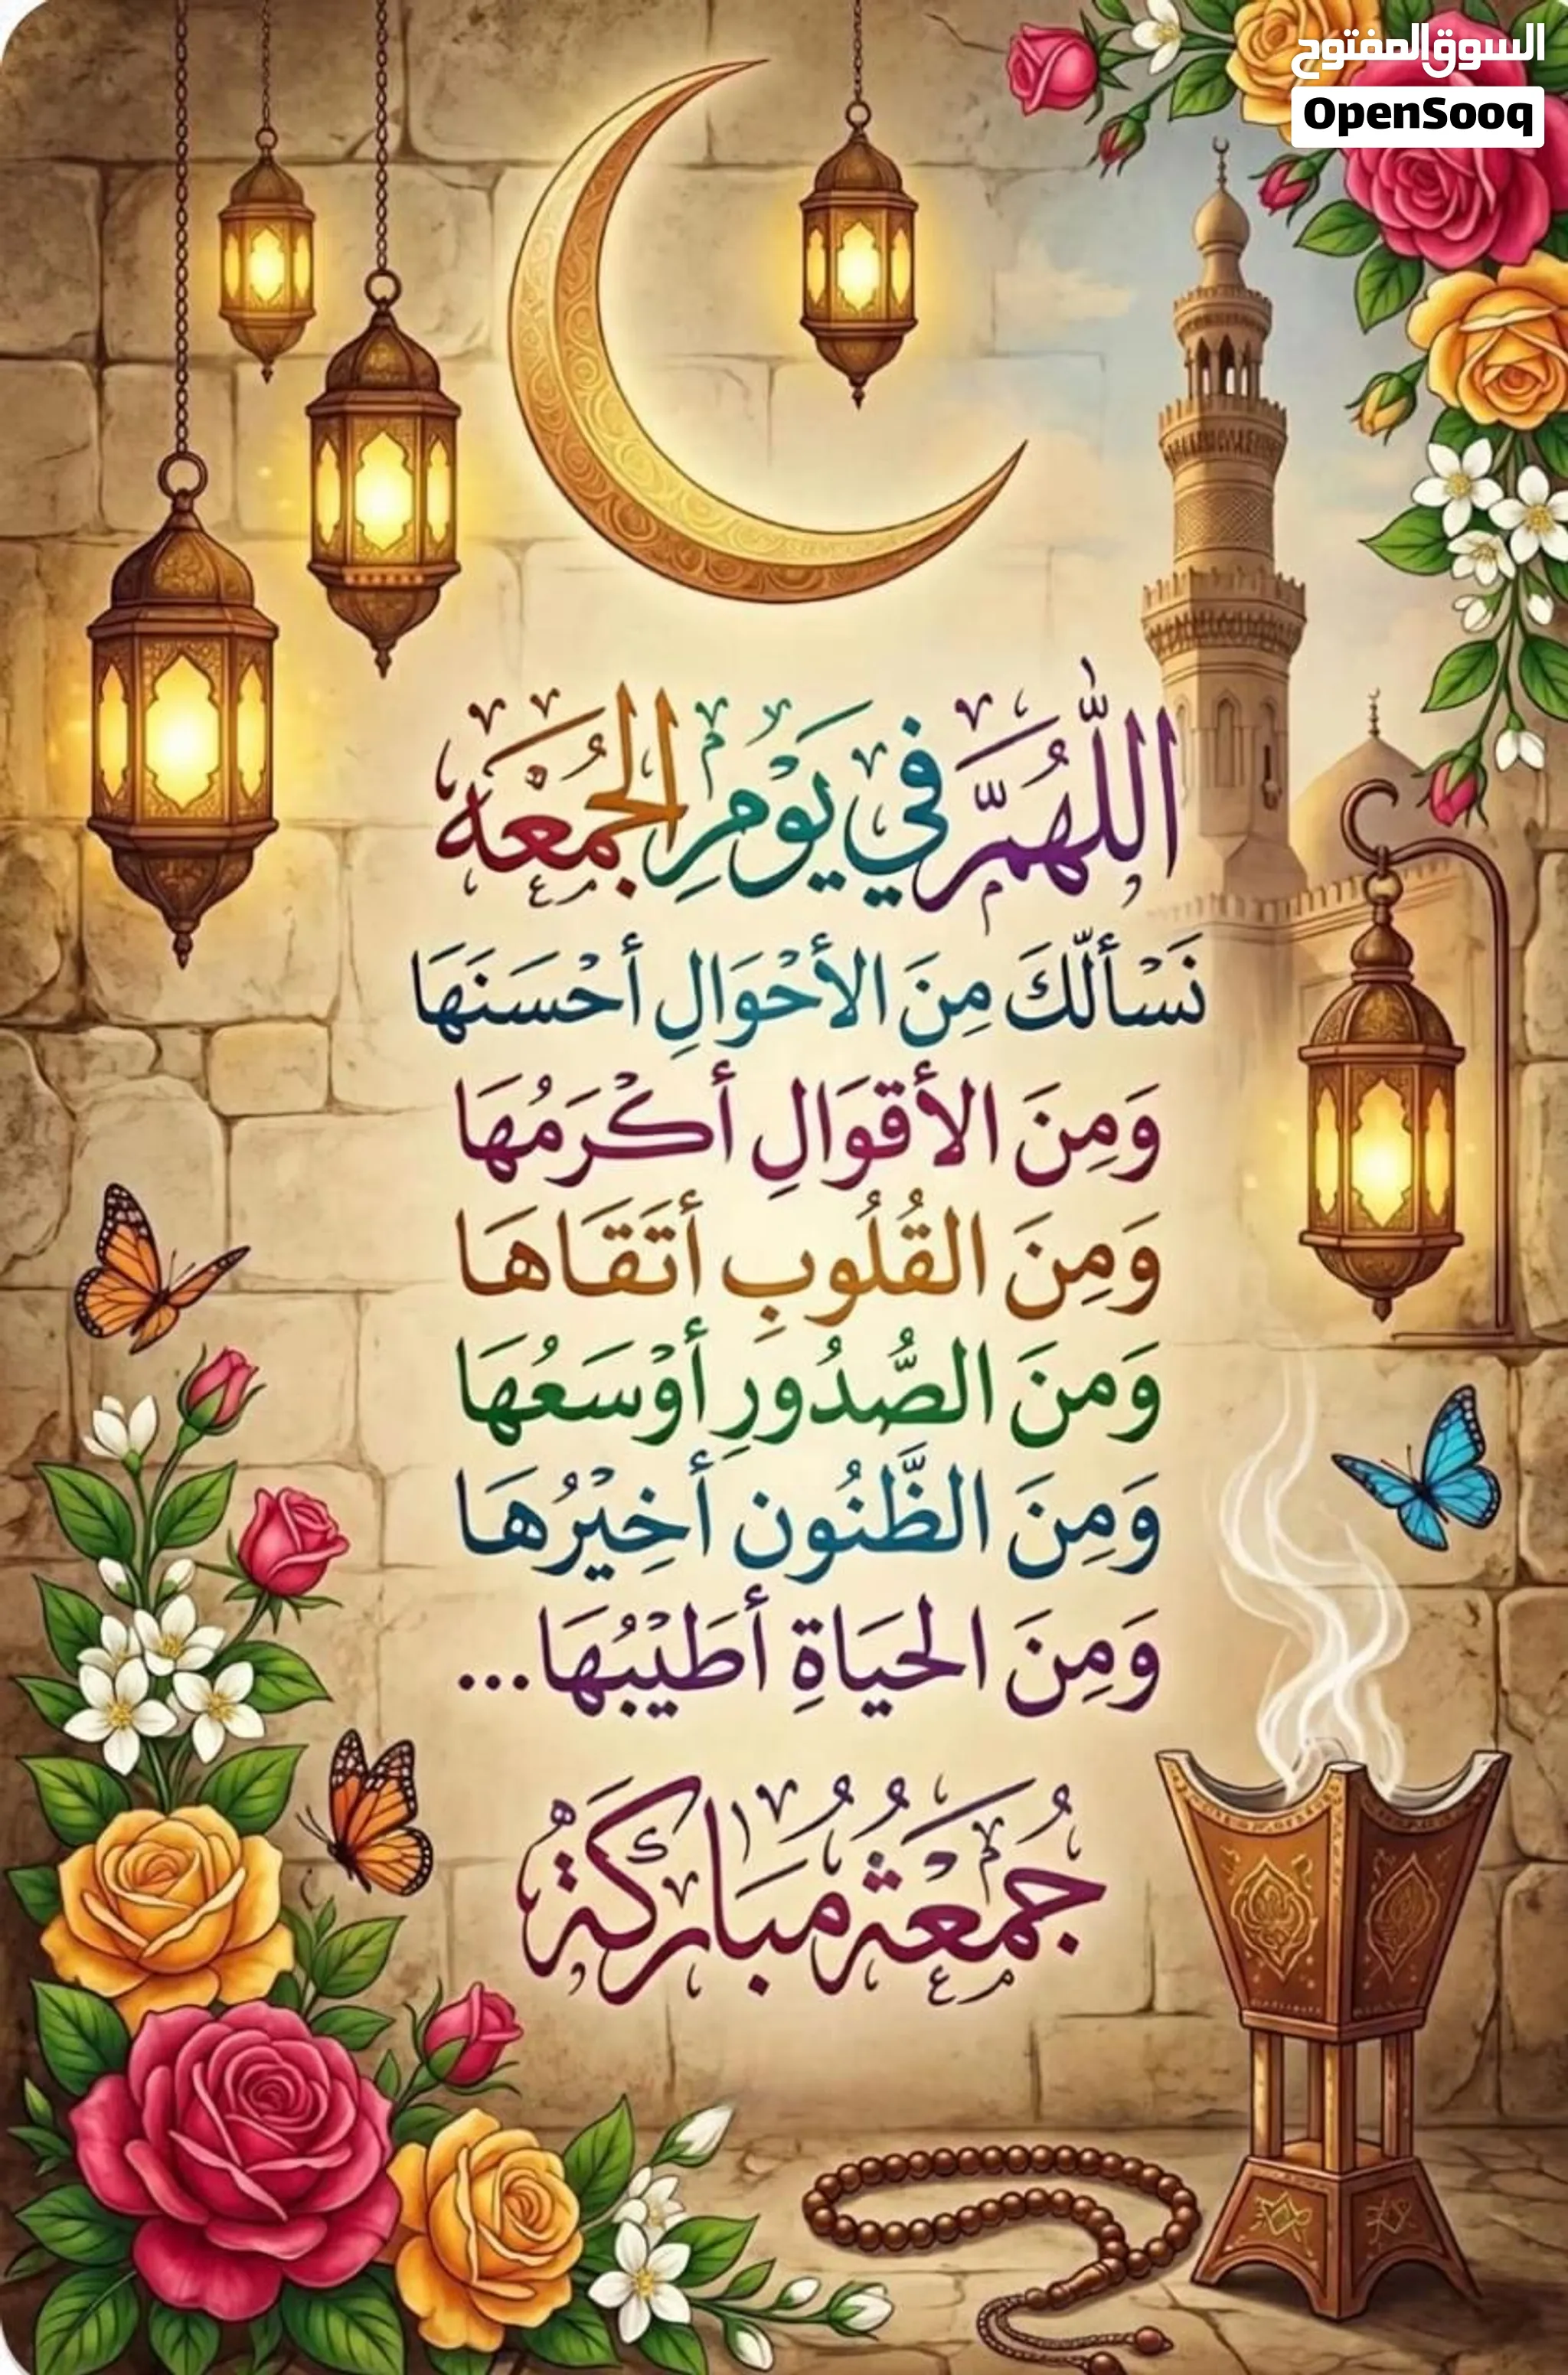 السوق المفتوح
OpenSooq
اللّٰهُمَّ في يَوْمِ الجُمْعَه
نَسْأَلّكَ مِنَ الأَحْوَالِ أَحْسَنَهَا
وَمِنَ الأَقوَالِ أَكْرَمُهَا
وَمِنَ القُلُوبِ أَتَقَاهَا
وَمنَ الصُّدُورِ أَوْسَعُهَا
وَمِنَ الظَّنُون أَخِيْرُهَا
وَمِنَ الحَيَاةِ أَطَيْبُهَا...
جُمْعَةٌ مُبَارَكَةٌ